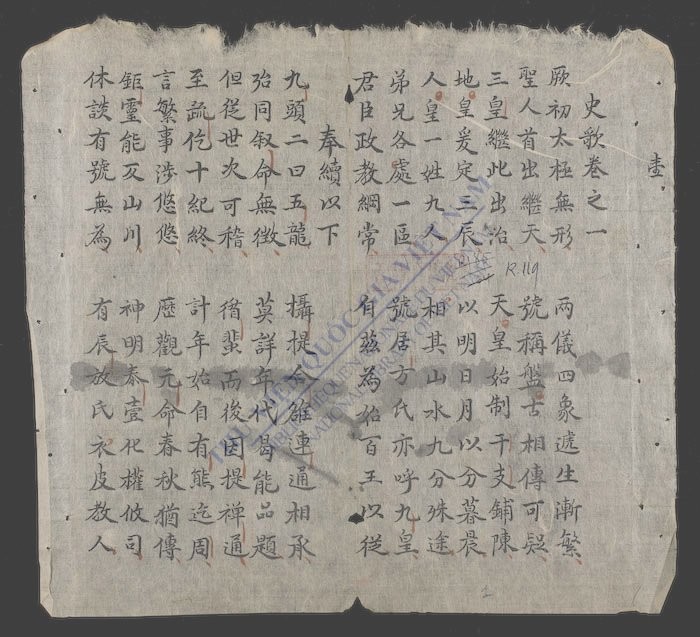 壹
史歌卷之一
厥初太極無形 兩儀四象遞生漸繁
聖人首出繼天 號稱盤古相傳可疑
三皇繼此出治 天皇始制干支鋪陳
地皇爰定三辰 以明日月以分暮晨
人皇一姓九人 相其山水九分殊途
弟兄各處一區 號居方氏亦呼九皇
君臣政教綱常 自茲為始百王以從
奉續以下
九頭二曰五龍 攝提合雒連通相承
殆同叙命無徵 莫詳年代曷能品題
但從世次可稽 循蜚而後因提禪通
至疏仡十紀終 計年始自有熊迄周
言繁事涉悠悠 歷觀元命春秋猶傳
鉅靈能反山川 神明泰壹化權攸司
休談有號無為 有辰放氏衣皮教人
R.119
THƯ VIỆN QUỐC GIA VIỆT NAM
NATIONAL LIBRARY OF